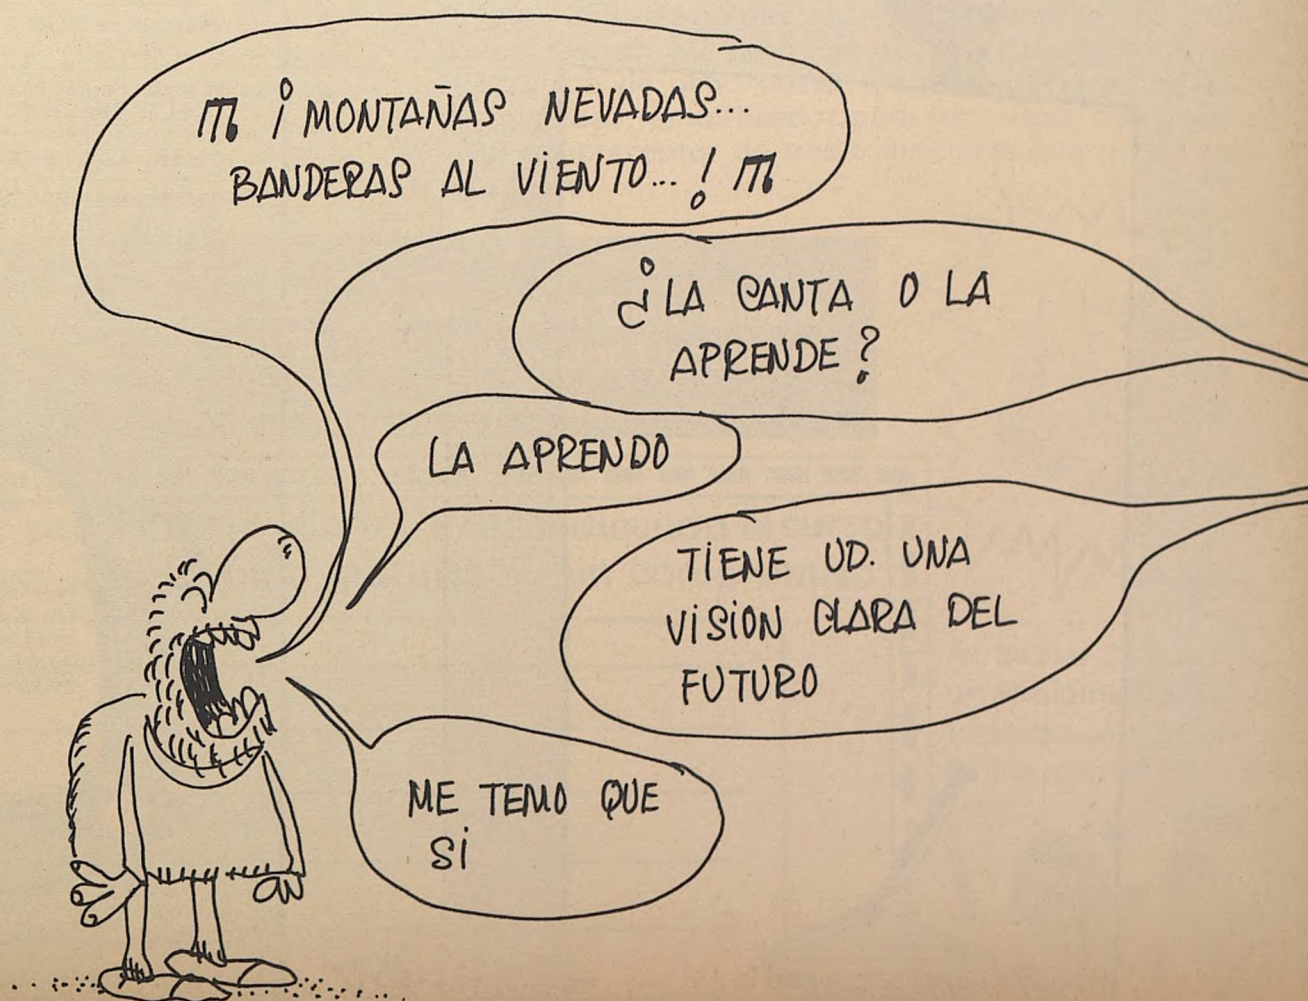 ¡MONTAÑAS NEVADAS...
BANDERAS AL VIENTO...!
¿LA CANTA O LA
APRENDE?
LA APRENDO
TIENE UD. UNA
VISION CLARA DEL
FUTURO
ME TEMO QUE
SI